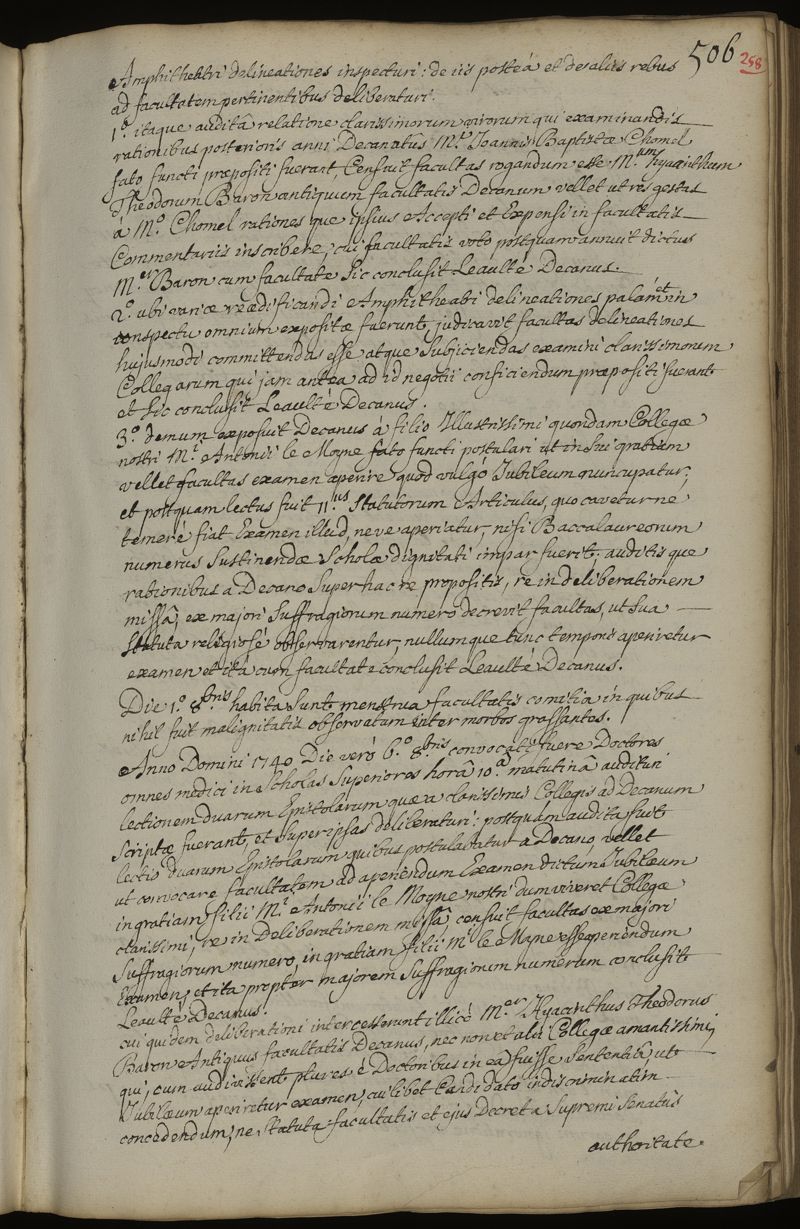 506
258
Amphitheatri delineationes inspecturi: de iis posteà et de aliis rebus
ad facultatem pertinentibus deliberaturi.
1.° itaque auditâ relatione clarissimorum virorum qui examinandis
rationibus posterioris anni Decanatûs M.ri Joannis Baptistæ Chomel
fato functi præpositi fuerant, Censuit facultas rogandum esse M.um hyacinthum
Theodorum Baron antiquum facultatis Decanum vellet ut res gestas
à M.o Chomel rationesque ipsius Accepti et Expensi in facultatis
Commentariis inscribere; cui facultatis voto postquam annuit dictus
M.er Baron cum facultate sic conclusit Leaulté Decanus.
2.° ubi variæ reædificandi Amphitheatri delineationes palam et in
conspectu omnium expositæ fuerunt, judicavit facultas delineationes
hujusmodi committendas esse atque subjiciendas examini clarissimorum
Collegarum qui jam antea ad id negotii conficiendum præpositi fuerant
et sic conclusit Leaulté Decanus.
3.° demum exposuit Decanus a filio Illustrissimi quondam Collegæ
nostri M.i Antonii le Moyne fato functi postulari ut in sui gratiam
vellet facultas examen aperire quod vulgò Jubileum nuncupatur;
et postquam lectus fuit 11.us Statutorum Articulus, quo cavetur ne
temerè fiat Examen illud, neve aperiatur, nisi Baccalaureorum
numerus sustinendæ Scholæ dignitati impar fuerit: auditisque
rationibus a Decano super hac re propositis, re in deliberationem
missâ, ex majori suffragiorum numero decrevit facultas, ut sua
Statuta religiosè observarentur, nullumque tunc temporis aperiretur
examen et ità cum facultate conclusit Leaulté Decanus.
Die 1.° 8.bris habita sunt menstrua facultatis comitia in quibus
nihil fuit malignitatis observatum inter morbos grassantes.
Anno Domini 1740 Die verò 6.° 8.bris convocati fuere Doctores
omnes medici in Scholas Superiores horâ 10.a matutinâ audituri
lectionem duarum Epistolarum quæ a clarissimis Collegis ad Decanum
scriptæ fuerant, et super ipsas deliberaturi: postquam audita fuit
lectio duarum Epistolarum quibus postulabatur a Decano, vellet
ut convocare facultatem ad aperiendum Examen dictum Jubilæum
in gratiam filii M.i Antonii le Moyne nostri dum viveret Collegæ
clarissimi, re in Deliberationem missâ, censuit facultas ex majori
Suffragiorum numero, in gratiam filii M.i le Moyne esse aperiendum
Examen, et ita propter majorem suffragiorum numerum conclusit
Leaulté Decanus.
cui quidem deliberationi intercesserunt illicò M.er Hyacinthus Theodorus
Baron Antiquus facultatis Decanus, nec non et alii Collegæ amantissimi,
qui, cum audivissent plures è Doctoribus in ea fuisse sententiâ, ut
Jubilæum aperiretur examen, cuilibet Candidato indiscriminatim
concedendum, ne Statuta facultatis et ejus Decreta Supremi Senatûs
authoritate.